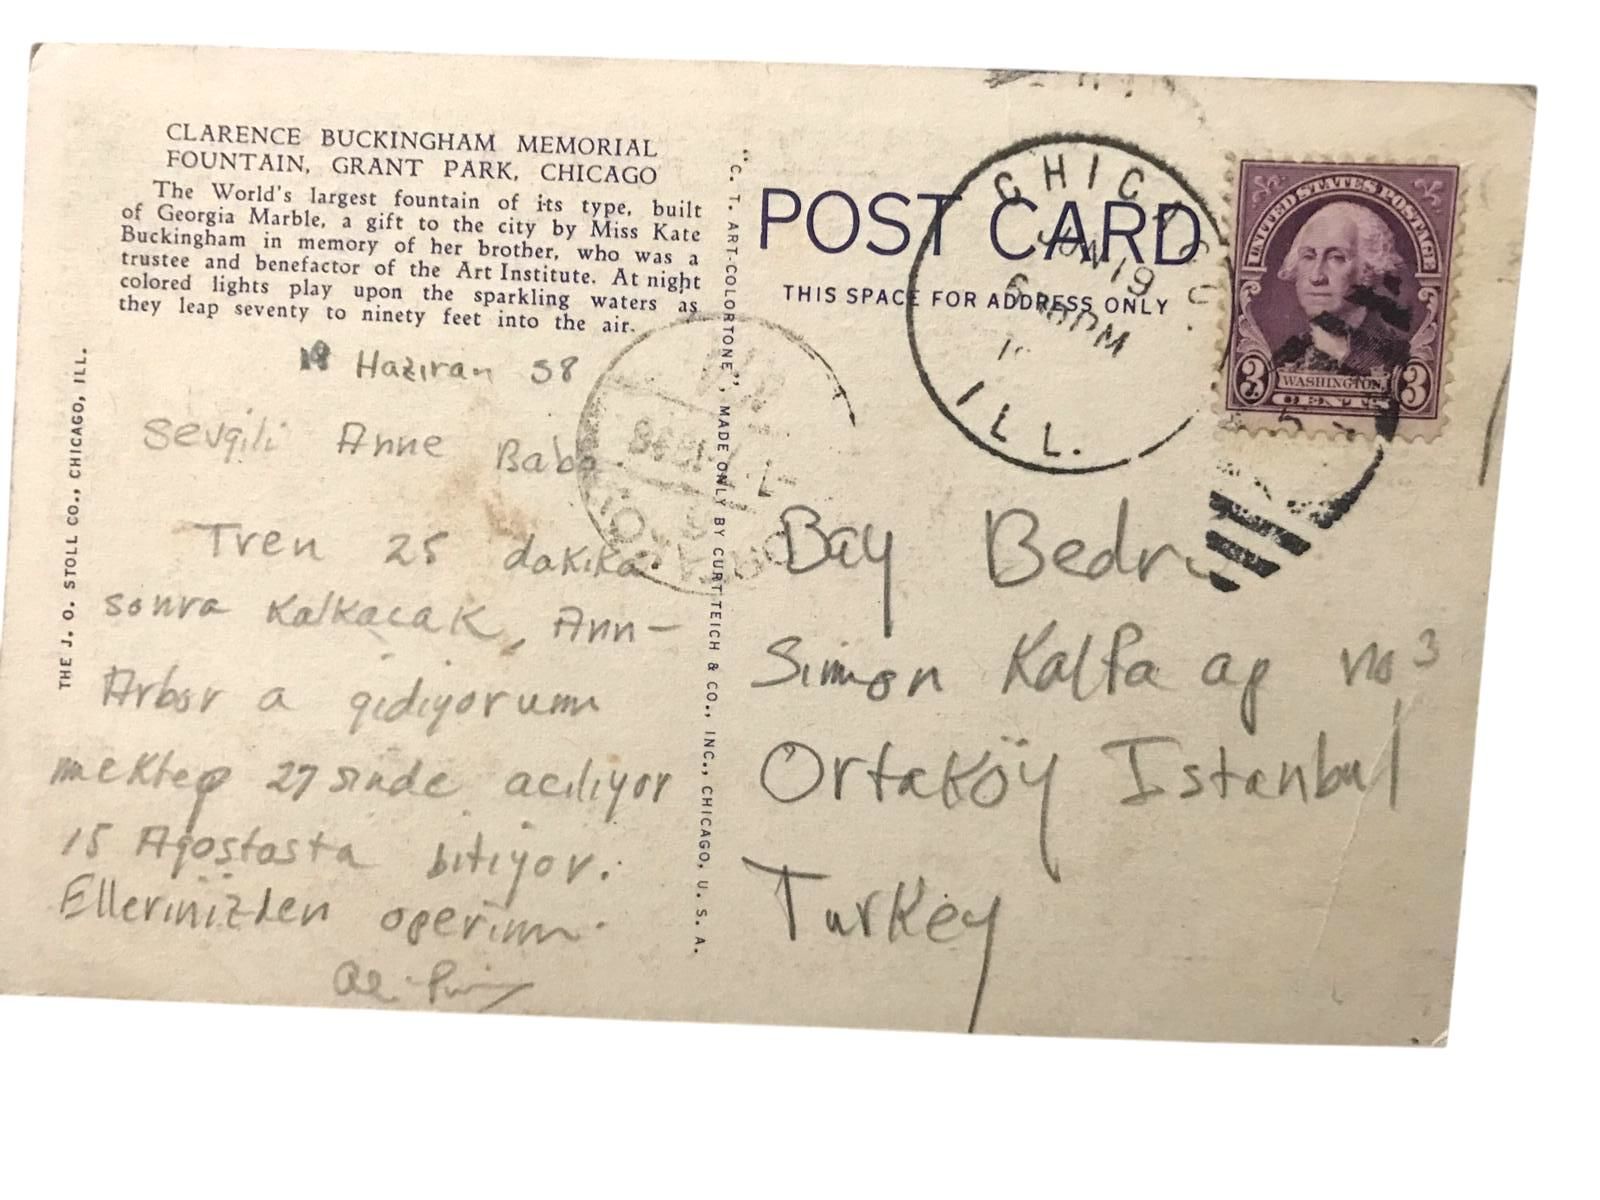 CLARENCE BUCKINGHAM MEMORIAL
FOUNTAIN, GRANT PARK, CHICAGO
The World's largest fountain of its type, built
of Georgia Marble, a gift to the city by Miss Kate
Buckingham in memory of her brother, who was a
trustee and benefactor of the Art Institute. At night
colored lights play upon the sparkling waters as
they leap seventy to ninety feet into the air.
Haziran 38
Sevgili Anne Baba
Tren 25 dakika
sonra kalkacak, Ann-
Arbor a gidiyorum
mektep 27 sinde aciliyor
15 Agostosta bitiyor.
Ellerinizden operim.
THE J. O. STOLL CO., CHICAGO, ILL.
"C. T. ART-COLORTONE", MADE ONLY BY CURT TEICH & CO., INC., CHICAGO, U. S. A.
POST CARD
THIS SPACE FOR ADDRESS ONLY
CHICAGO
JUN 19
PM
ILL.
UNITED STATES POSTAGE
3 WASHINGTON 3
CENTS
ORTAKOY
Bay Bedri
Simon Kalfa ap no 3
Ortaköy Istanbul
Turkey